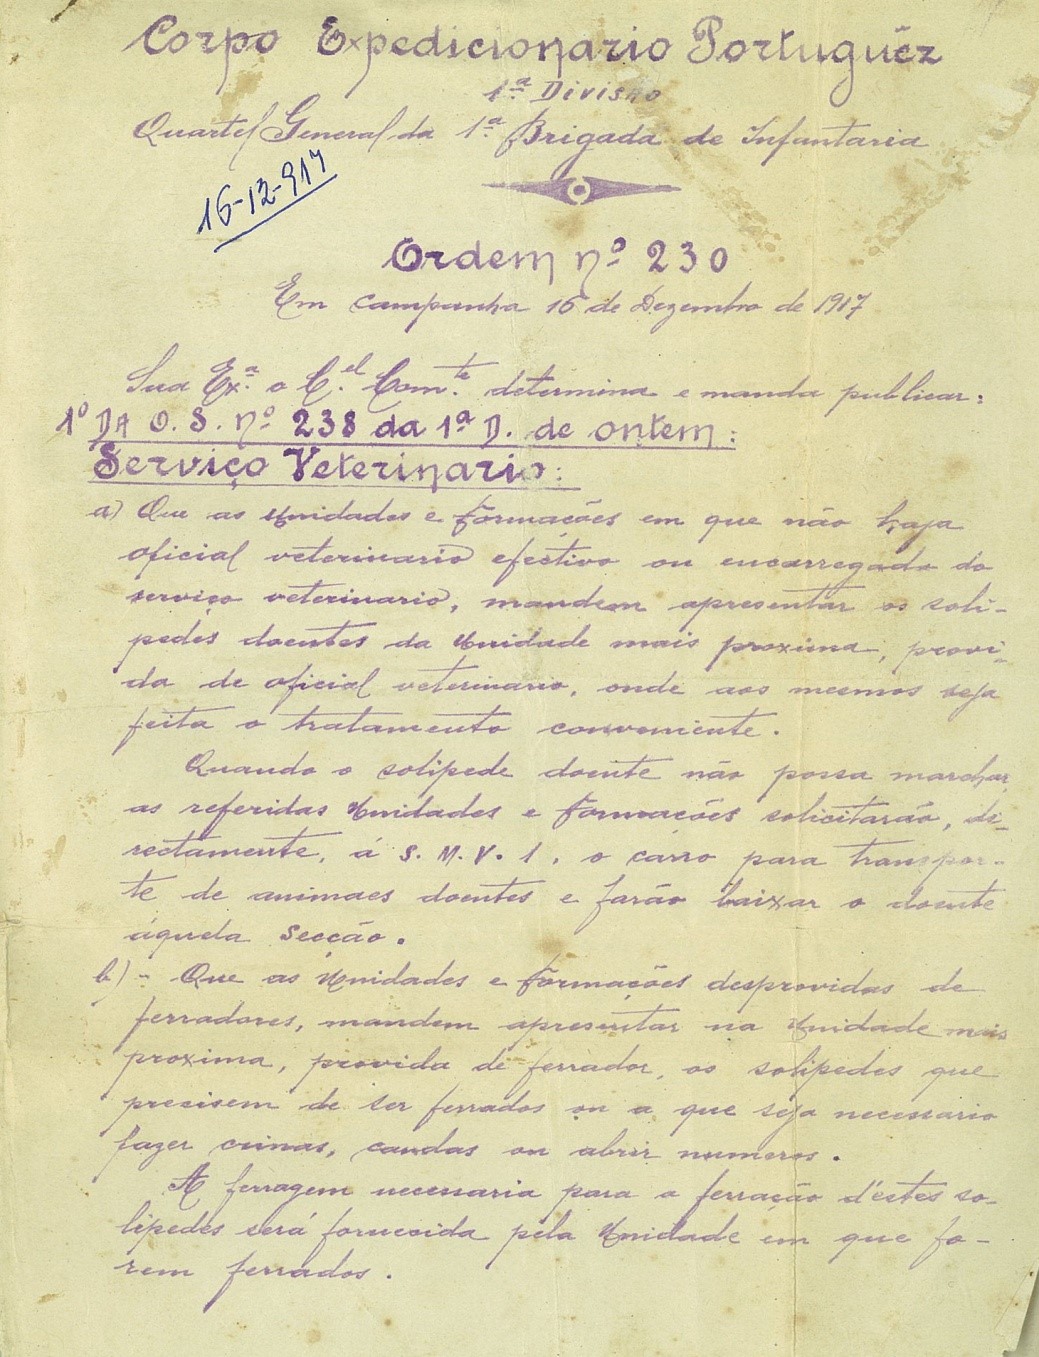 Corpo Expedicionario Portuguêz
1ª Divisão
Quartel General da 1ª Brigada de Infantaria
16-12-917
Ordem nº 230
Em campanha 16 de Dezembro de 1917
Sua Exª. o C.el Com.te determina e manda publicar:
1º DA O. S. nº 238 da 1ª D. de ontem:
Serviço Veterinario:
a) Que as Unidades e Formações em que não haja
oficial veterinario efectivo ou encarregado do
serviço veterinario, mandem apresentar os soli-
pedes doentes da Unidade mais proxima, provi-
da de oficial veterinario, onde aos mesmos seja
feita o tratamento conveniente.
Quando o solipede doente não possa marchar,
as referidas Unidades e Formações solicitarão, di-
rectamente, á S. M. V. 1, o carro para transpor-
te de animaes doentes e farão baixar o doente
áquela Secção.
b) - Que as Unidades e Formações desprovidas de
ferradores, mandem apresentar na Unidade mais
proxima, provida de ferrador, os solipedes que
precisem de ser ferrados ou a que seja necessario
fazer crinas, caudas ou abrir numeros.
A ferragem necessaria para a ferração d'éstes so-
lipedes será fornecida pela Unidade em que fo-
rem ferrados.